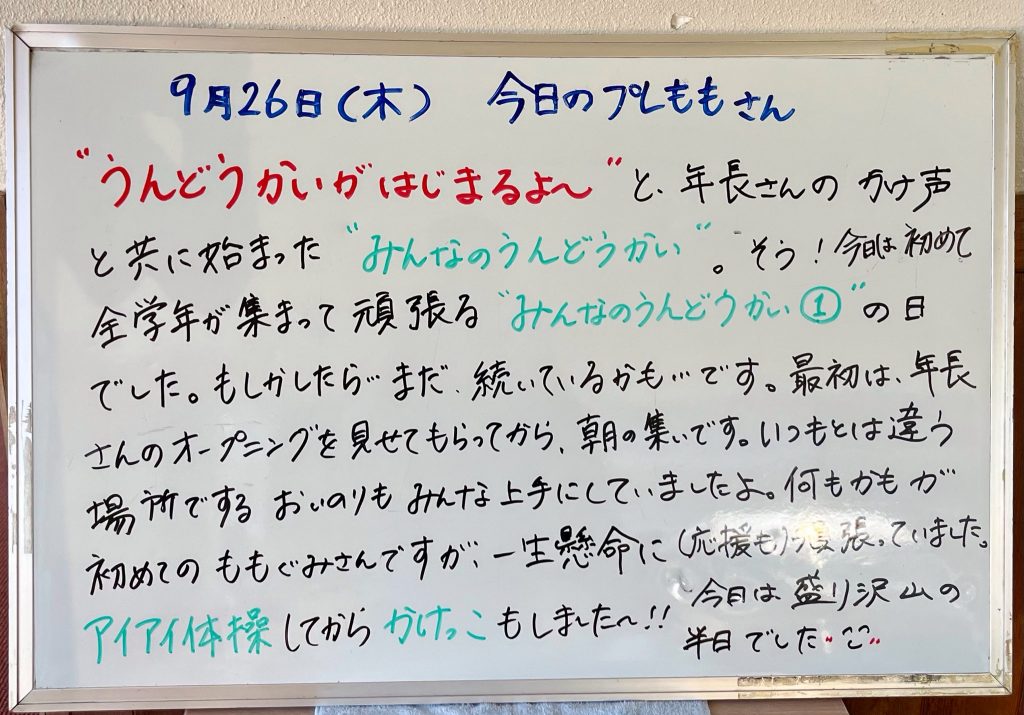 9月26日(木) 今日のプレももさん
"うんどうかいがはじまるよ〜"と、年長さんのかけ声
と共に始まった"みんなのうんどうかい"。そう!今日は初めて
全学年が集まって頑張る"みんなのうんどうかい①"の日
でした。もしかしたら…まだ、続いているかも…です。最初は、年長
さんのオープニングを見せてもらってから、朝の集いです。いつもとは違う
場所でするおいのりもみんな上手にしていましたよ。何もかもが
初めてのももぐみさんですが、一生懸命に(応援も)頑張っていました。
アイアイ体操してからかけっこもしました〜!!
今日は盛り沢山の
半日でした